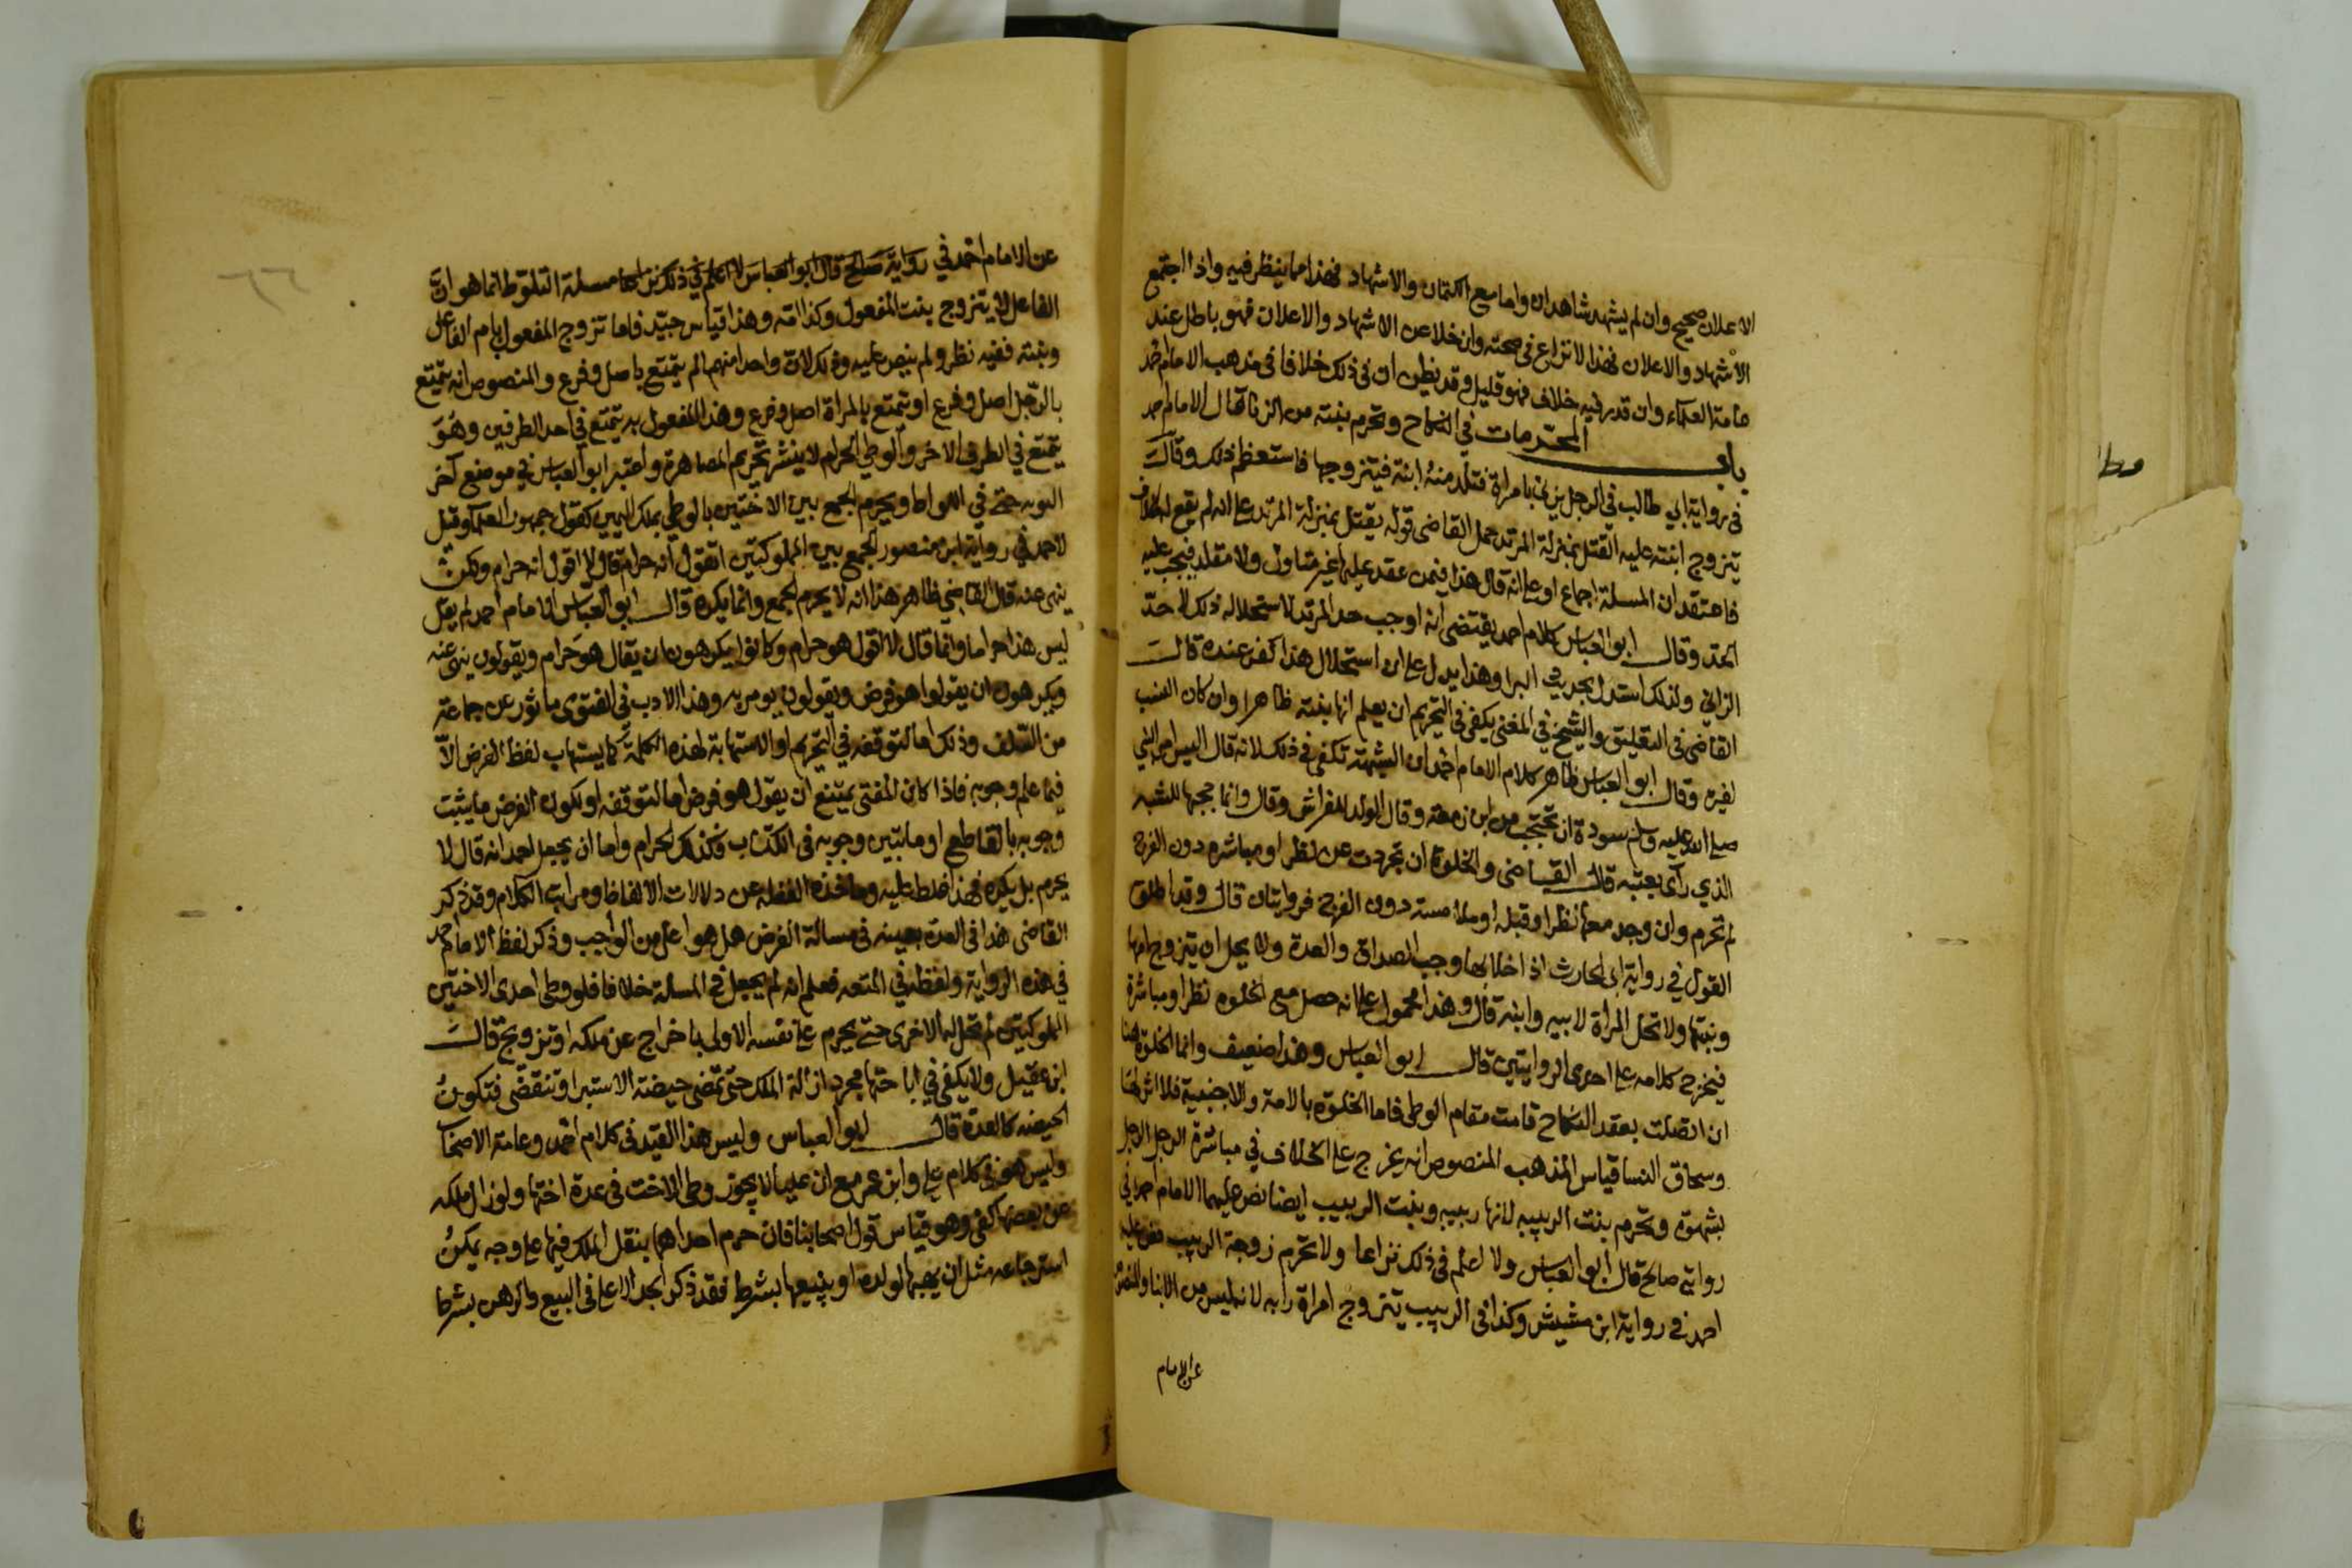 الاعلان صحيح وان لم يشهد شاهدان واما مع الكتمان والاشهاد فهذا مما ينظر فيه واذا اجتمع
الاشهاد والاعلان فهذا لا نزاع في صحته وان خلا عن الاشهاد والاعلان فهو باطل عند
عامة العلماء وان قدر فيه خلاف فهو قليل وقد يظن ان في ذلك خلافا في مذهب الامام احمد
باب المحرمات في النكاح وتحرم بنته من الزنا قال الامام احمد
في رواية ابي طالب في الرجل يزني بامراة فتلد منه ابنة فيتزوجها فاستعظم ذلك وقال
يتزوج ابنته عليه القتل بمنزلة المرتد حمل القاضي قوله يقتل بمنزلة المرتد على انه لم يقع له الخلاف
فاعتقد ان المسلة اجماع او على انه قال هذا فيمن عقد عليها غير متاول ولا مقلد فيجب عليه
الحد وقال ابو العباس كلام احمد يقتضي انه اوجب حد المرتد لاستحلاله ذلك لا حد
الزاني ولذلك استدل بحديث البرا وهذا يدل على ان استحلال هذا كفر عنده قال
القاضي في التعليق والشيخ في المغني يكفي في التحريم ان يعلم انها بنته ظاهرا وان كان النسب
لغيره وقال ابو العباس ظاهر كلام الامام احمد ان الشبهة تكفي في ذلك لانه قال اليس امر النبي
صلى الله عليه وسلم سودة ان تحتجب من ابن زمعة وقال الولد للفراش وقال وانما حجبها للشبه
الذي رآى بعتبة قال القاضي والخلوة ان تجردت عن نظر او مباشرة دون الفرج
لم تحرم وان وجد معها نظر او قبلة او ملامسة دون الفرج فروايتان قال وقد اطلق
القول في رواية ابي الحارث اذا خلا بها وجب الصداق والعدة ولا يحل ان يتزوج امها
وبنتها ولا تحل المراة لابيه وابنه قال وهذا محمول على انه حصل مع الخلوة نظر او مباشرة
فيخرج كلامه على احدى الروايتين قال ابو العباس وهذا ضعيف وانما الخلوة هنا
ان اتصلت بعقد النكاح قامت مقام الوطي فاما الخلوة بالامة والاجنبية فلا اثر لها
وسحاق النسا قياس المذهب المنصوص انه يخرج على الخلاف في مباشرة الرجل الرجل
بشهوة وتحرم بنت الربيبه لانها ربيبه وبنت الربيب ايضا نص عليهما الامام احمد في
رواية صالح قال ابو العباس ولا اعلم في ذلك نزاعا ولا تحرم زوجة الربيب نص عليه
احمد في رواية ابن مشيش وكذا في الربيب يتزوج امراة رابه لانه ليس من الابنا والمنصوص
عن الامام
عن الامام احمد في رواية صالح قال ابو العباس لا اعلم في ذلك نزاعا مسلة التلوط انما هو ان
الفاعل لا يتزوج بنت المفعول وكذا امه وهذا قياس جيد فاما تزوج المفعول بام الفاعل
وبنته ففيه نظر ولم ينص عليه وذلك لان واحدا منهم لم يتمتع باصل وفرع والمنصوص انه يتمتع
بالرجل اصل وفرع او تمتع بالمراة اصل وفرع وهذا المفعول به يتمتع في احد الطرفين وهو
يتمتع في الطرف الاخر والوطي الحرام لا ينشر تحريم المصاهرة واعتبر ابو العباس في موضع آخر
التوبه حتى في اللواط ويحرم الجمع بين الاختين بالوطي بملك اليمين كقول جمهور العلماء وقيل
لاحمد في رواية ابن منصور الجمع بين المملوكتين اتقول انه حرام قال لا اقول انه حرام ولكن
ينهى عنه قال القاضي ظاهر هذا انه لا يحرم الجمع وانما يكره قال ابو العباس الامام احمد لم يقل
ليس هذا حراما وانما قال لا اقول هو حرام وكانوا يكرهون ان يقال هو حرام ويقولون ينهى عنه
ويكرهون ان يقولوا هو فرض ويقولون يومر به وهذا الادب في الفتوى ماثور عن جماعة
من السلف وذلك اما لتوقفه في التحريم او لاستهابة لهذه الكلمة كما يستهاب لفظ الفرض الا
فيما علم وجوبه فاذا كان المفتى يمتنع ان يقول هو فرض اما لتوقفه او لكون الفرض ما يثبت
وجوبه بالقاطع او ما تبين وجوبه في الكتاب فكذلك الحرام واما ان يجعل احمد انه قال لا
يحرم بل يكره فهذا غلط عليه وماخذه الغفلة عن دلالات الالفاظ ومراتب الكلام وقد ذكر
القاضي هذا في العدة بعينه في مسالة الفرض هل هو اعلى من الواجب وذكر لفظ الامام احمد
في هذه الرواية ولفظه في المتعه فعلم انه لم يجعل في المسألة خلافا فلو وطي احدى الاختين
المملوكتين لم تحل له الاخرى حتى يحرم على نفسه الاولى باخراج عن ملكه او تزويج قال
ابن عقيل ولا يكفي في اباحتها مجرد ازالة الملك حتى تمضي حيضة الاستبرا وتنقضي فتكون
الحيضه كالعدة قال ابو العباس وليس هذا القيد في كلام احمد وعامة الاصحاب
وليس هو في كلام علي وابن عمر مع ان عليا لا يجوز وطي الاخت في عدة اختها ولو زال ملكه
عن بعضها كفى وهو قياس قول اصحابنا فان حرم احداهما بنقل الملك فيها على وجه يمكن
استرجاعه مثل ان يهبها لولده او يبيعها بشرط فقد ذكر الجد الاعلى في البيع والرهن بشرط